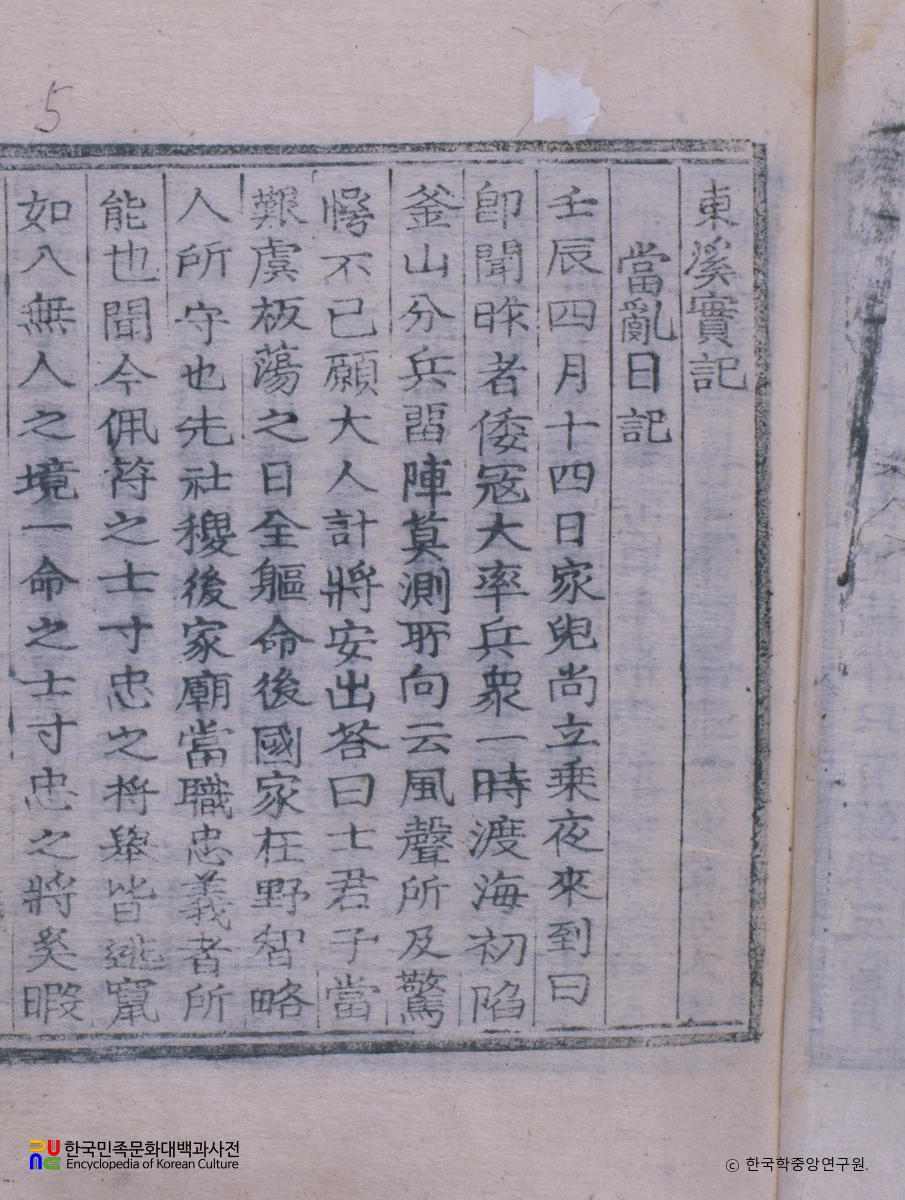 5
東溪實記
當亂日記
壬辰四月十四日家兒尚立乗夜來到曰
卽聞昨者倭寇大率兵衆一時渡海初陷
釜山分兵畱陣莫測所向云風聲所及驚
愕不已願大人計將安出答曰士君子當
艱虞板蕩之日全軀命後國家在野智略
人所守也先社稷後家廟當職忠義者所
能也聞今佩符之士寸忠之將擧皆逃竄
如入無人之境一命之士寸忠之將奚暇
한국민족문화대백과사전
Encyclopedia of Korean Culture
ⓒ 한국학중앙연구원.